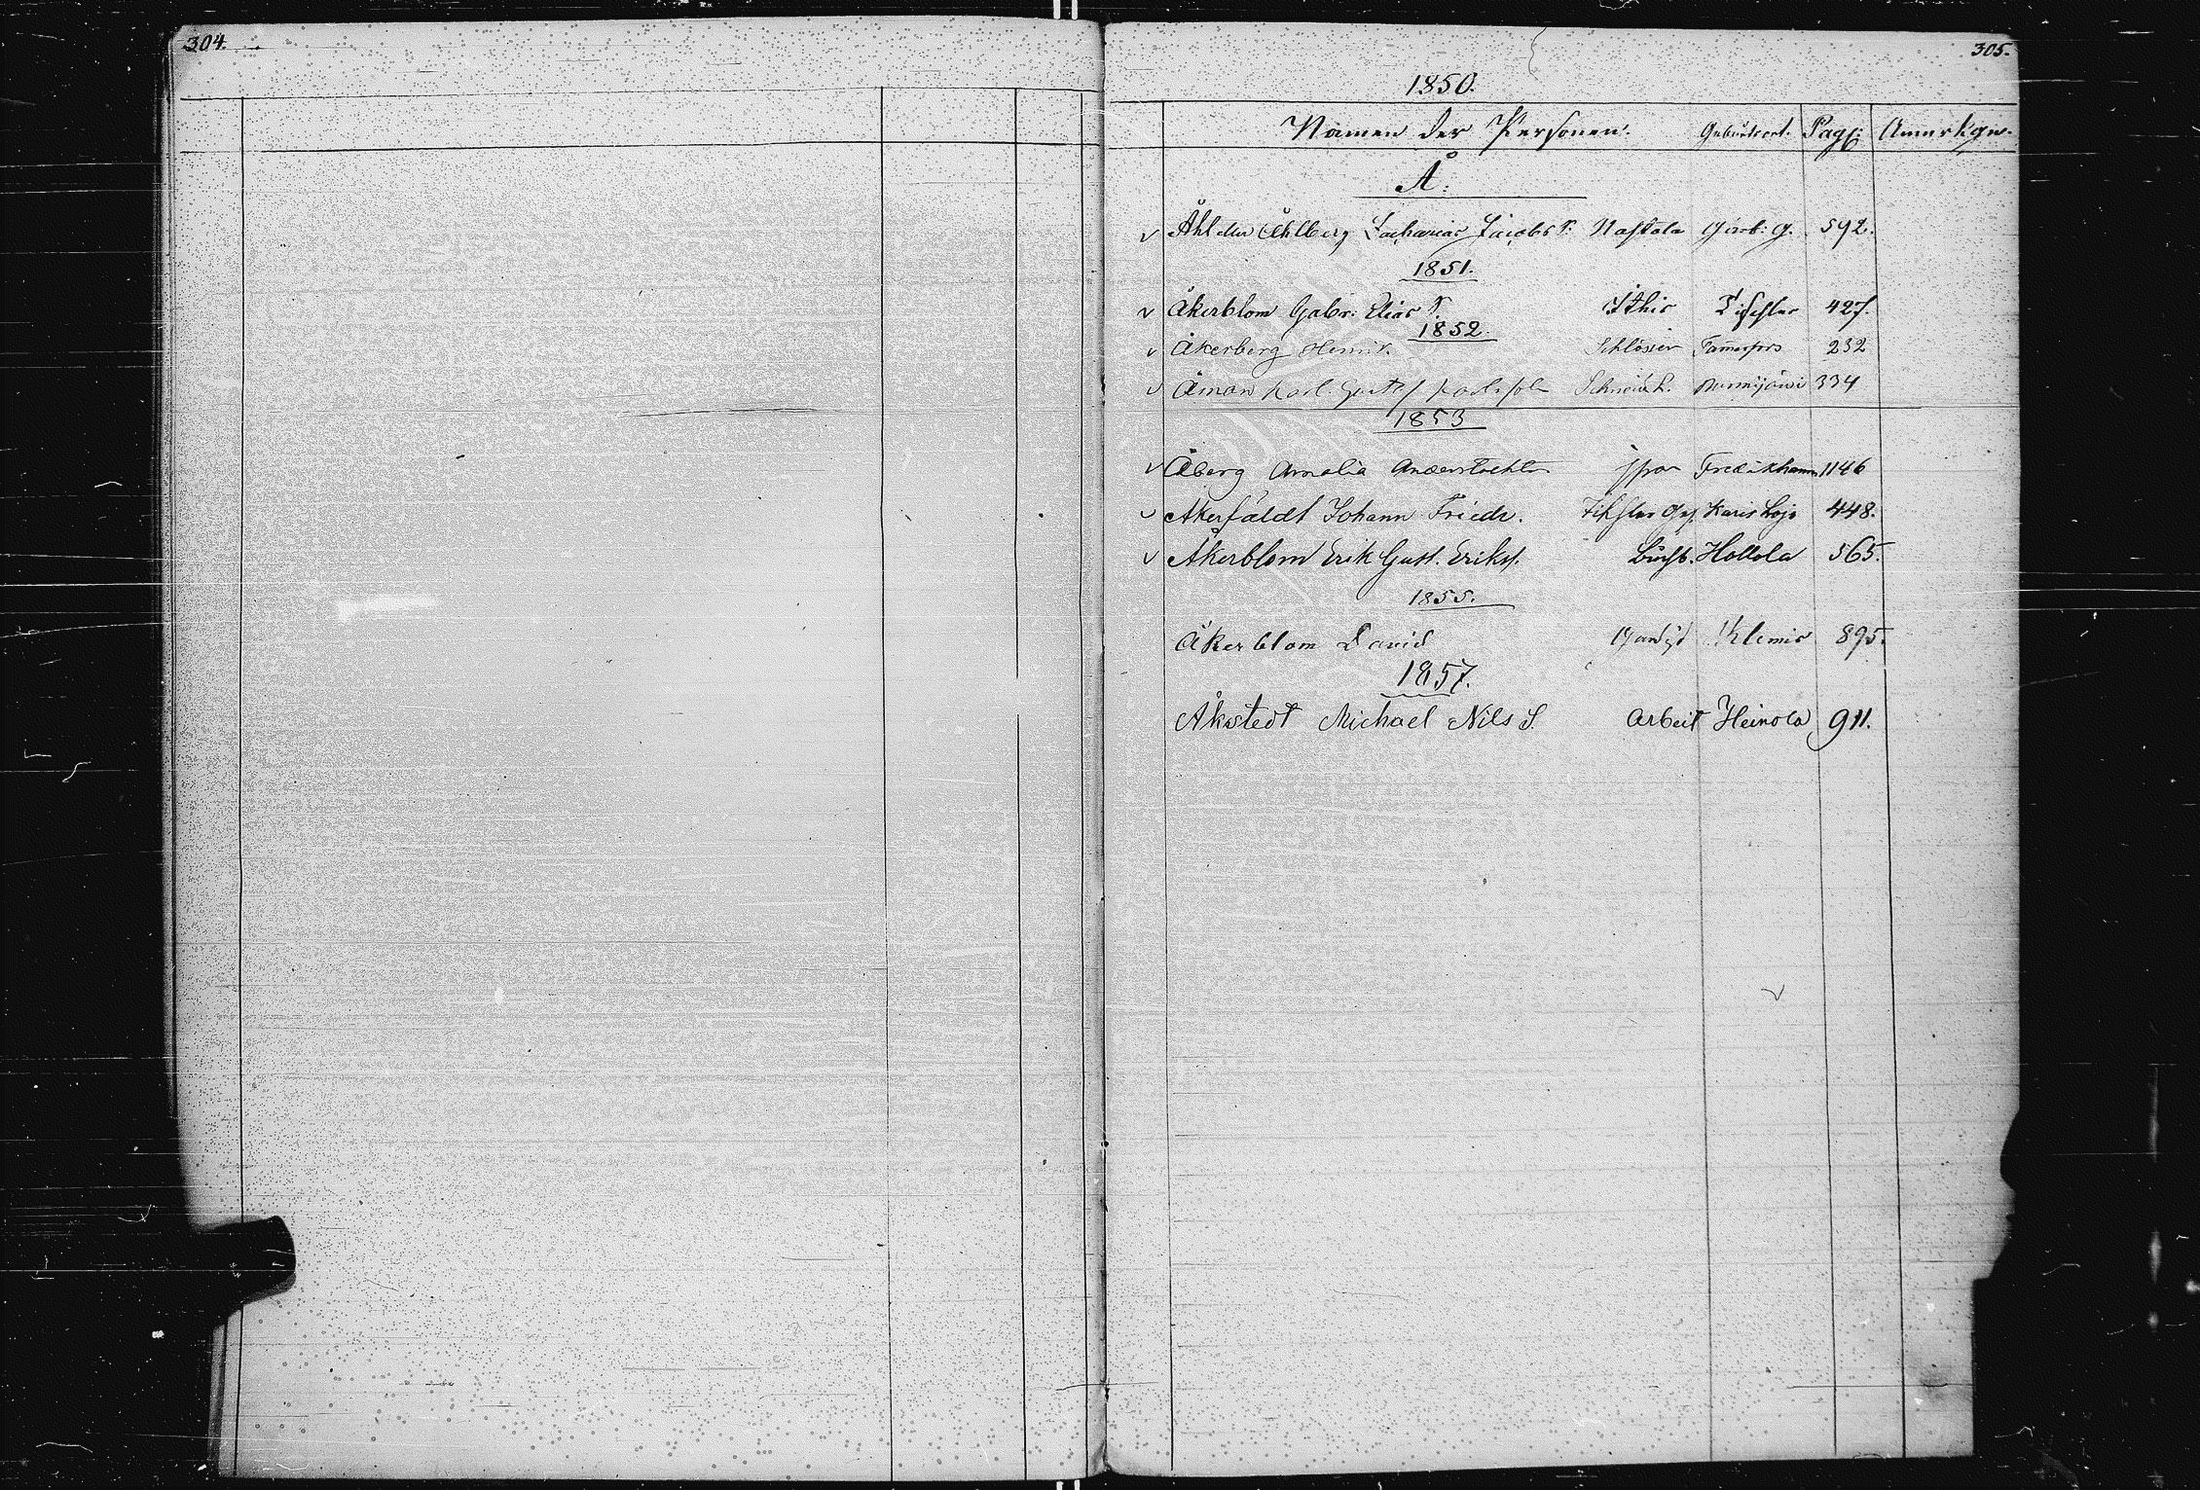 304.
305.
1850.
Namen der Personen. Geburtsort. Pagg: Anmerkgn.
Å:
v Åhl oder Åhlberg Zacharias Jacobs S. Nastola Gärb. G. 592.
1851.
v Åkerblom Gabr: Elias S. Itis Tischler 427.
1852.
v Åkerberg Henrik Schlosser Tamerfors 232
v Åman Karl Gustaf Karlssohn Schneid. Nurmijärwi 334
1853
v Åberg Amalia Anderstochter Fredrikhamn 1146
v Åkerfäldt Johann Friedr. Tischler Ges. Karis Lojo 448.
v Åkerblom Erik Gust. Eriks. Hollola 565.
1855.
Åkerblom David Klemis 895.
1857.
Åkstedt Michael Nils S. Arbeit Heinola 911.